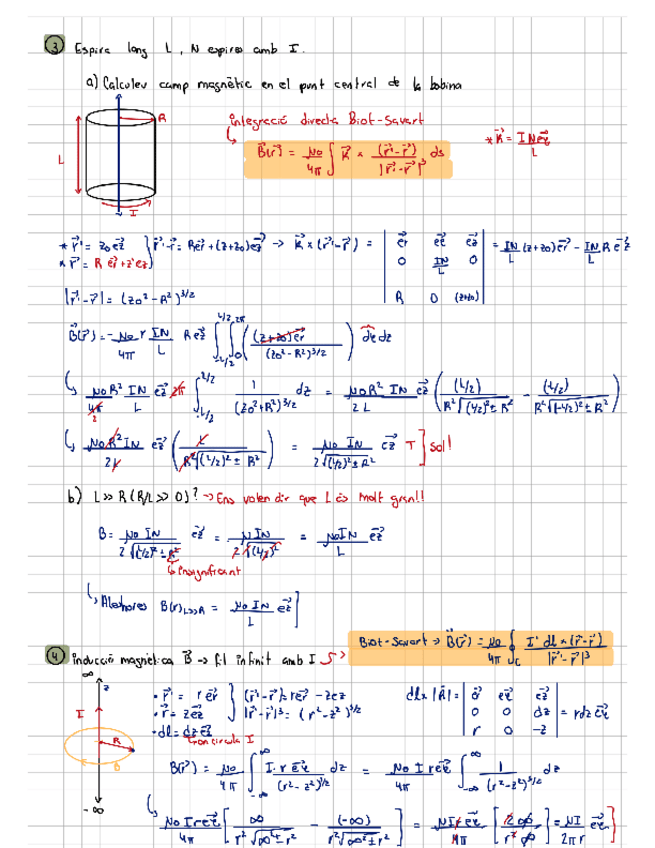 ③ Espira long L, N espires amb I.
a) Calculeu camp magnètic en el punt central de la bobina
Integració directa Biot-Savart
* K⃗ = I N e⃗φ / L
B⃗(r⃗) = μ₀/4π ∫ K⃗ × (r⃗'-r⃗)/|r⃗'-r⃗|³ ds
R
L
I
* r⃗' = z₀ e⃗z } r⃗'-r⃗ = R e⃗r + (z+z₀) e⃗z → K⃗ × (r⃗'-r⃗) = | e⃗r e⃗φ e⃗z ; 0 IN/L 0 ; R 0 (z+z₀) | = IN/L (z+z₀) e⃗r - IN/L R e⃗z
* r⃗ = R e⃗r + z' e⃗z
|r⃗'-r⃗| = (z₀² - R²)^3/2
B⃗(r⃗) = - μ₀/4π r IN/L R e⃗z ∫_-L/2^L/2 ∫_0^2π ( (z+z₀) e⃗r / (z₀²-R²)^3/2 ) dφ dz
↳ μ₀R² IN / 4π L e⃗z 2π ∫_-L/2^L/2 1/(z₀²+R²)^3/2 dz = μ₀R² IN / 2L e⃗z ( (L/2) / R²√((L/2)²±R²) - (L/2) / R²√((-L/2)²±R²) )
↳ μ₀R² IN / 2L e⃗z ( L / R²√((L/2)²±R²) ) = μ₀ IN / 2√((L/2)²±R² e⃗z T ] Sol!
b) L>>R (R/L >> 0)? → Ens volen dir que L és molt gran!!
B = μ₀ IN / 2√((L/2)²±R²) e⃗z = μ IN / 2√((L/2)²) = μ₀IN/L e⃗z
↳ Insignificant
↳ Aleshores B(r)L>>R = μ₀ IN / L e⃗z ]
Biot-Savart → B⃗(r⃗) = μ₀/4π ∮_C I' dl × (r⃗'-r⃗) / |r⃗'-r⃗|³
④ inducció magnètica B⃗ → fil infinit amb I
∞
z
I
R
B
-∞
• r⃗' = r e⃗r } (r⃗'-r⃗) = r e⃗r - z e⃗z
• r⃗ = z e⃗z } |r⃗'-r⃗|³ = (r²-z²)^3/2
• dl = dz e⃗z
on circula I
dl × |R⃗| = | e⃗r e⃗φ e⃗z ; 0 0 dz ; r 0 -z | = r dz e⃗φ
B(r⃗) = μ₀/4π ∫_-∞^∞ I·r e⃗φ / (r²-z²)^3/2 dz = μ₀ I r e⃗φ / 4π ∫_-∞^∞ 1/(r²-z²)^3/2 dz
↳ μ₀ I r e⃗φ / 4π [ ∞ / r²√(∞²±r²) - (-∞) / r²√(∞²±r²) ] = μ I r e⃗φ / 4π [ 2∞ / r²∞ ] = μI / 2πr e⃗φ ]